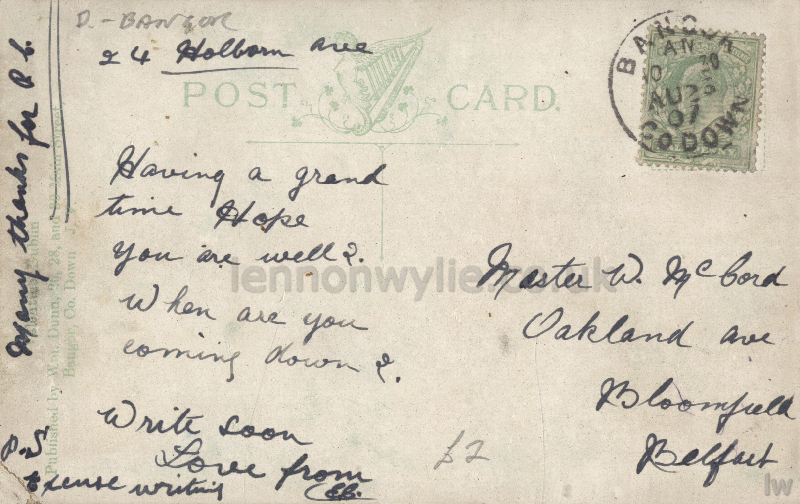 D. - BANGOR
24 Holborn ave
POST CARD.
BANGOR
AM
AU 23
07
CO DOWN
Having a grand
time Hope
you are well?.
When are you
coming down?.
Write soon
Love from
P.S
Excuse writing
Many thanks for P.C.
Published by Wm. Dunn, 28, and
Bangor, Co. Down
Master W. McCord
Oakland ave
Bloomfield
Belfast
£2
lennonwylie.co.uk
lw